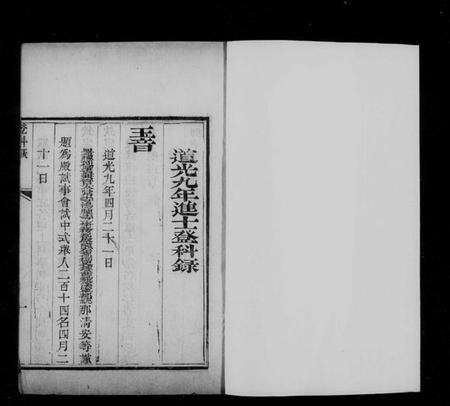 道光九年進士登科錄
玉音
道光九年四月二十一日
那清安等謹
題為殿試事會試中式舉人二百十四名四月二
十一日
登科錄